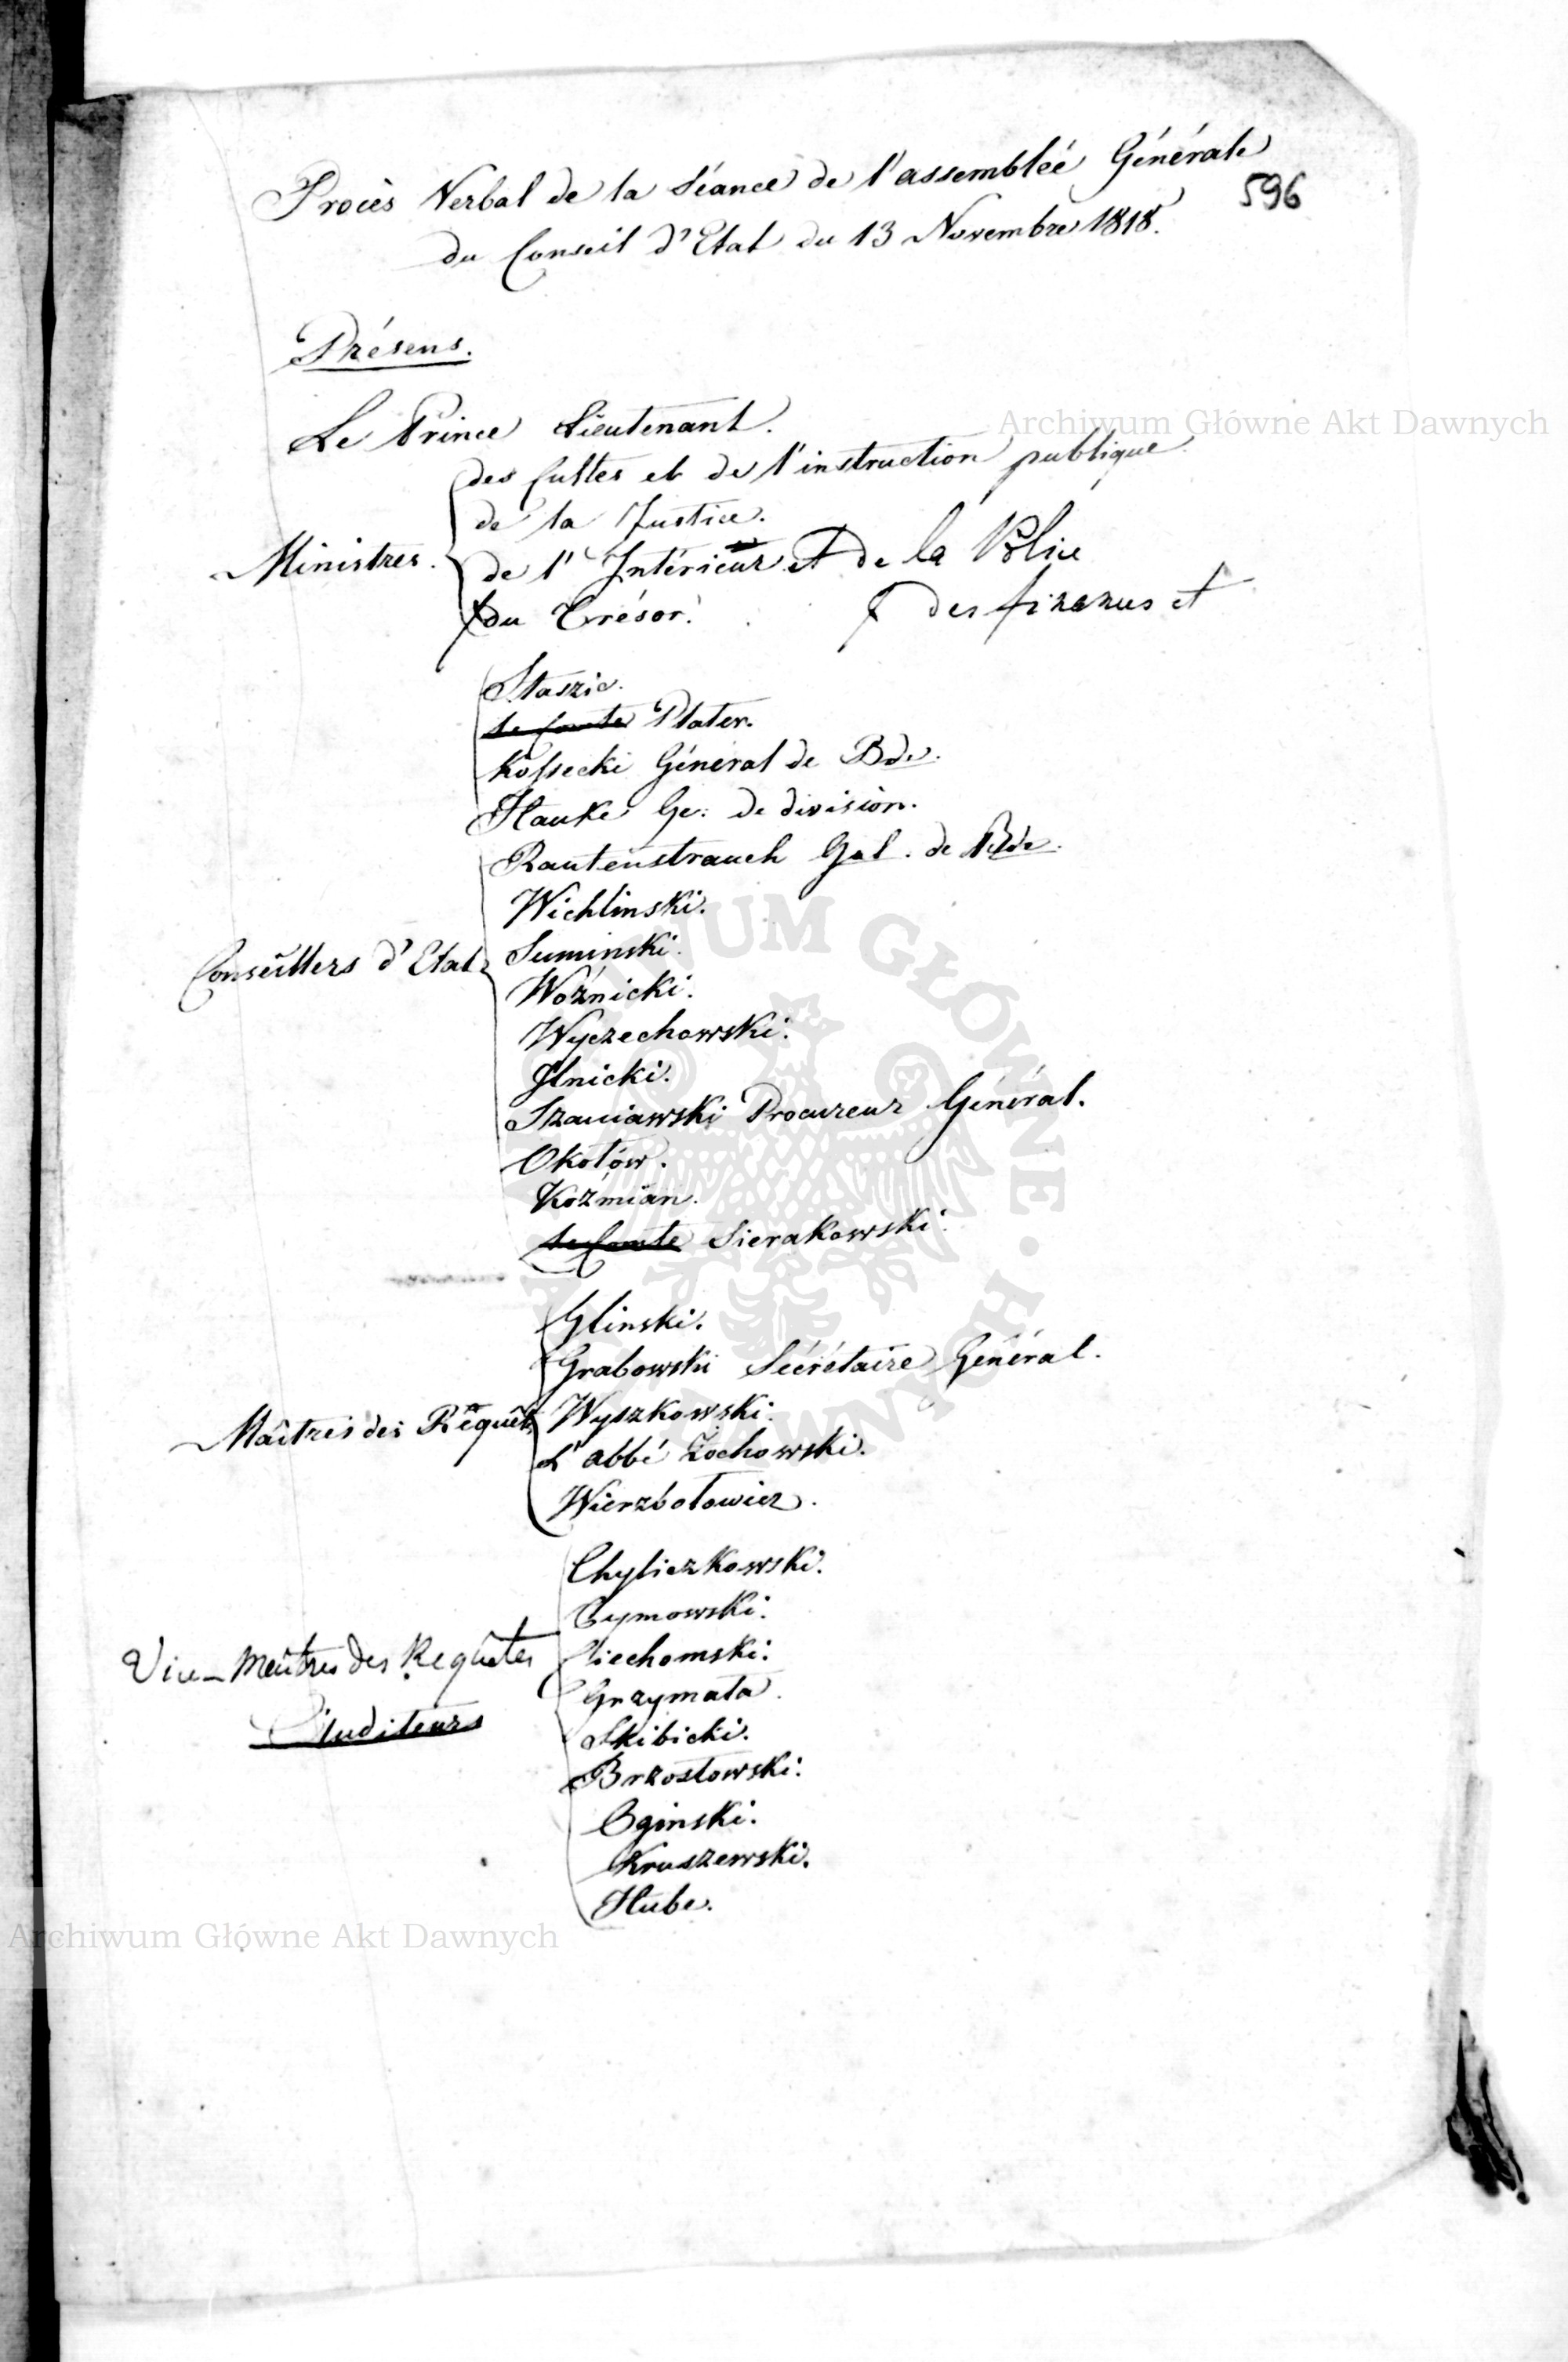 Procès Verbal de la Séance de l'assemblée Générale
596
du Conseil d'Etat du 13 Novembre 1818.
Présens.
Le Prince Lieutenant.
Archiwum Główne Akt Dawnych
des Cultes et de l'instruction publique
de la Justice.
Ministres. de l'Intérieur et de la Police
du Trésor. des finances et
Staszic.
le Comte Plater.
Kossecki Général de Bde.
Hauke Ge: de division.
Rautenstrauch Gal. de Bde.
Wichlinski.
Conseillers d'Etat Suminski.
Woźnicki.
Wyczechowski.
Ilnicki.
Szaniawski Procureur Général.
Okołów.
Koźmian.
le Comte Sierakowski.
Glinski.
Grabowski Sécrétaire Général.
Maîtres des Requêtes Wyszkowski.
L'abbé Żochowski.
Wierzbołowicz.
Chyliczkowski.
Cymowski.
Vice-Maîtres des Requêtes Ciechomski.
Grzymała.
Auditeurs Skibicki.
Brzostowski.
Oginski.
Kruszewski.
Hube.
Archiwum Główne Akt Dawnych
ARCHIWUM GŁÓWNE AKT DAWNYCH